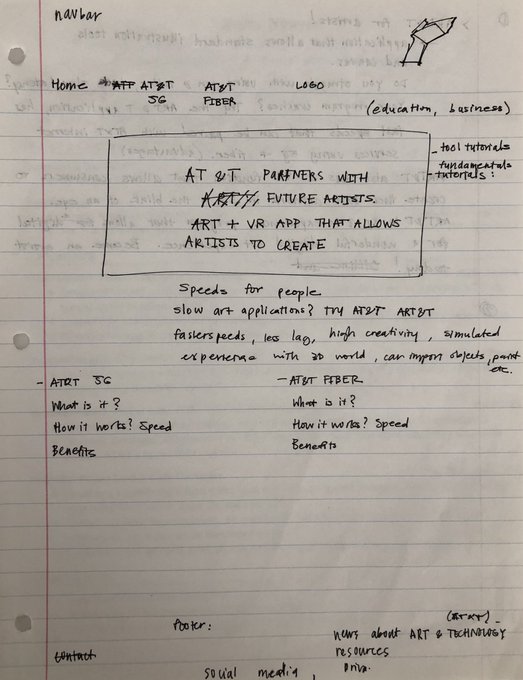 navbar
Home AT&T AT&T LOGO
5G FIBER
(education, business)
- tool tutorials
fundamentals
- tutorials :
AT&T PARTNERS WITH
ARTIST FUTURE ARTISTS.
ART + VR APP THAT ALLOWS
ARTISTS TO CREATE
Speeds for people
slow art applications? Try AT&T ART&T
faster speeds, less lag, high creativity, simulated
experience with 3D world, can import objects, paint
etc.
- AT&T 5G
What is it?
How it works? Speed
Benefits
- AT&T FIBER
What is it?
How it works? Speed
Benefits
footer:
(AT&T)
news about ART & TECHNOLOGY
contact
resources
social media,
priv.